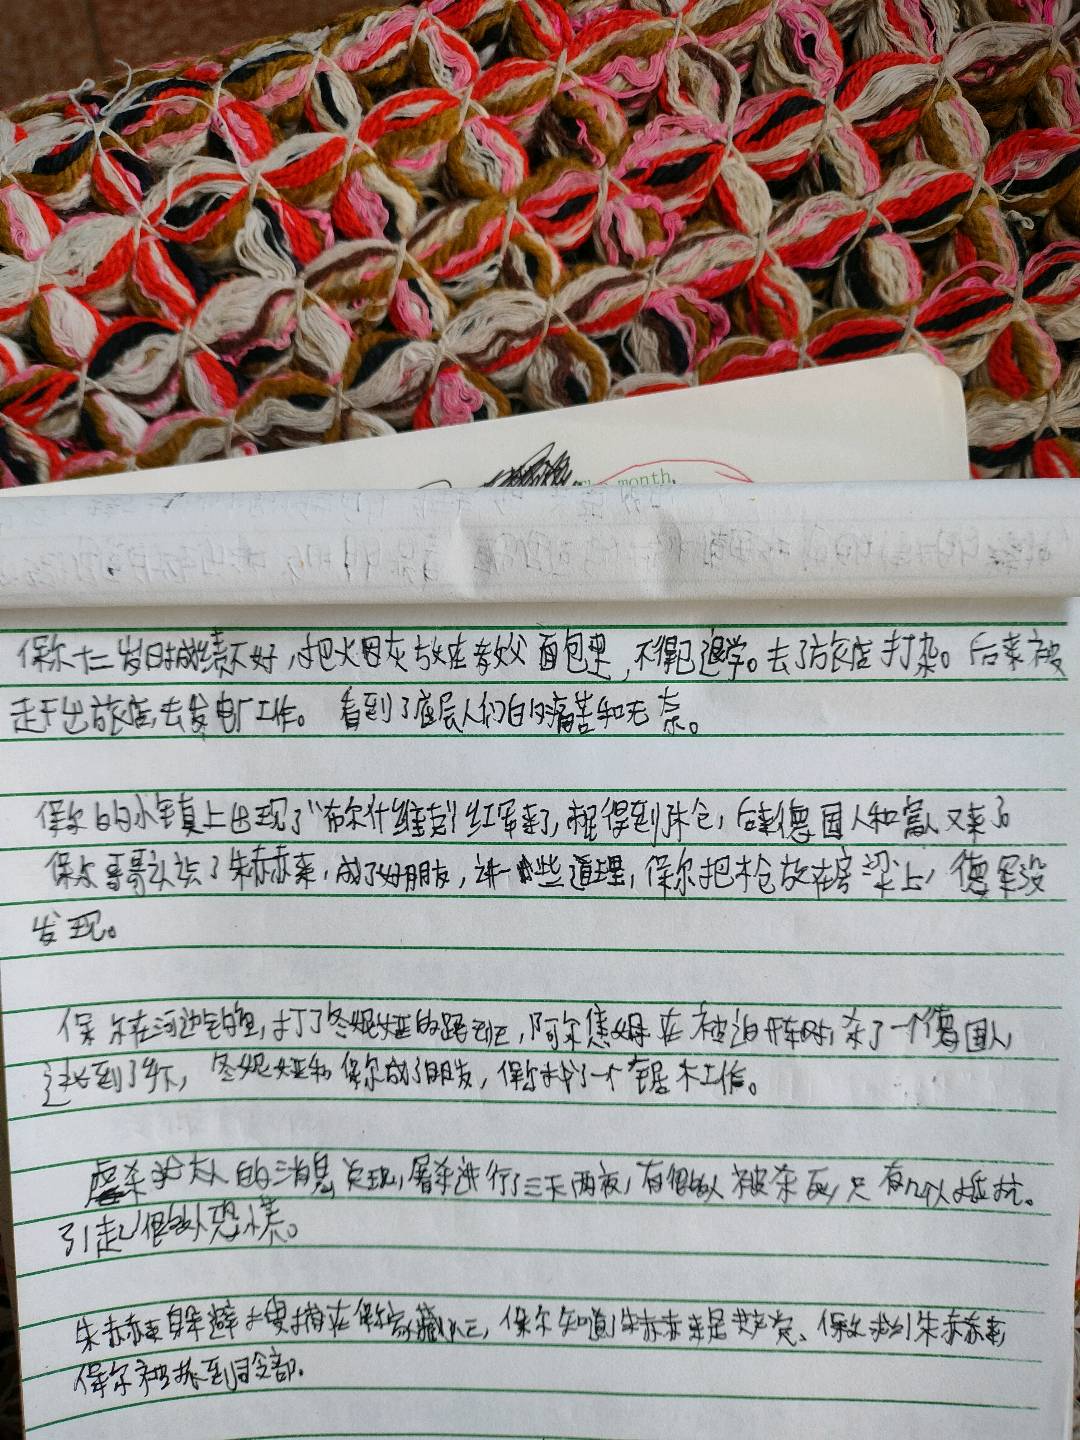 month
保尔十二岁时成绩不好,把火
灰放在
面包里,不得已退学。去了旅店打杂。后来被
赶出旅店,去发电厂工作。看到了底层人们的痛苦和无奈。
保尔的小镇上出现了“布尔什维克”红军来了,
得到
仓,后来德国人和富人又来了
保尔哥哥认识了朱赫来,成了好朋友,讲一些道理,保尔把枪放在房梁上,德军没
发现。
保尔在河边钓鱼,打了冬妮娅的
,阿尔焦姆在被迫开车时,杀了一个德国人,
逃到了乡下,冬妮娅和保尔成了朋友,保尔找了一个锯木工作。
屠杀犹太人的消息
,屠杀进行了三天两夜,有很多人被杀死,只有几个人抵抗。
引起很多人恐慌。
朱赫来躲避搜捕在保尔家藏
,保尔知道朱赫来是共产党、保尔救朱赫来,
保尔被抓到司令部.